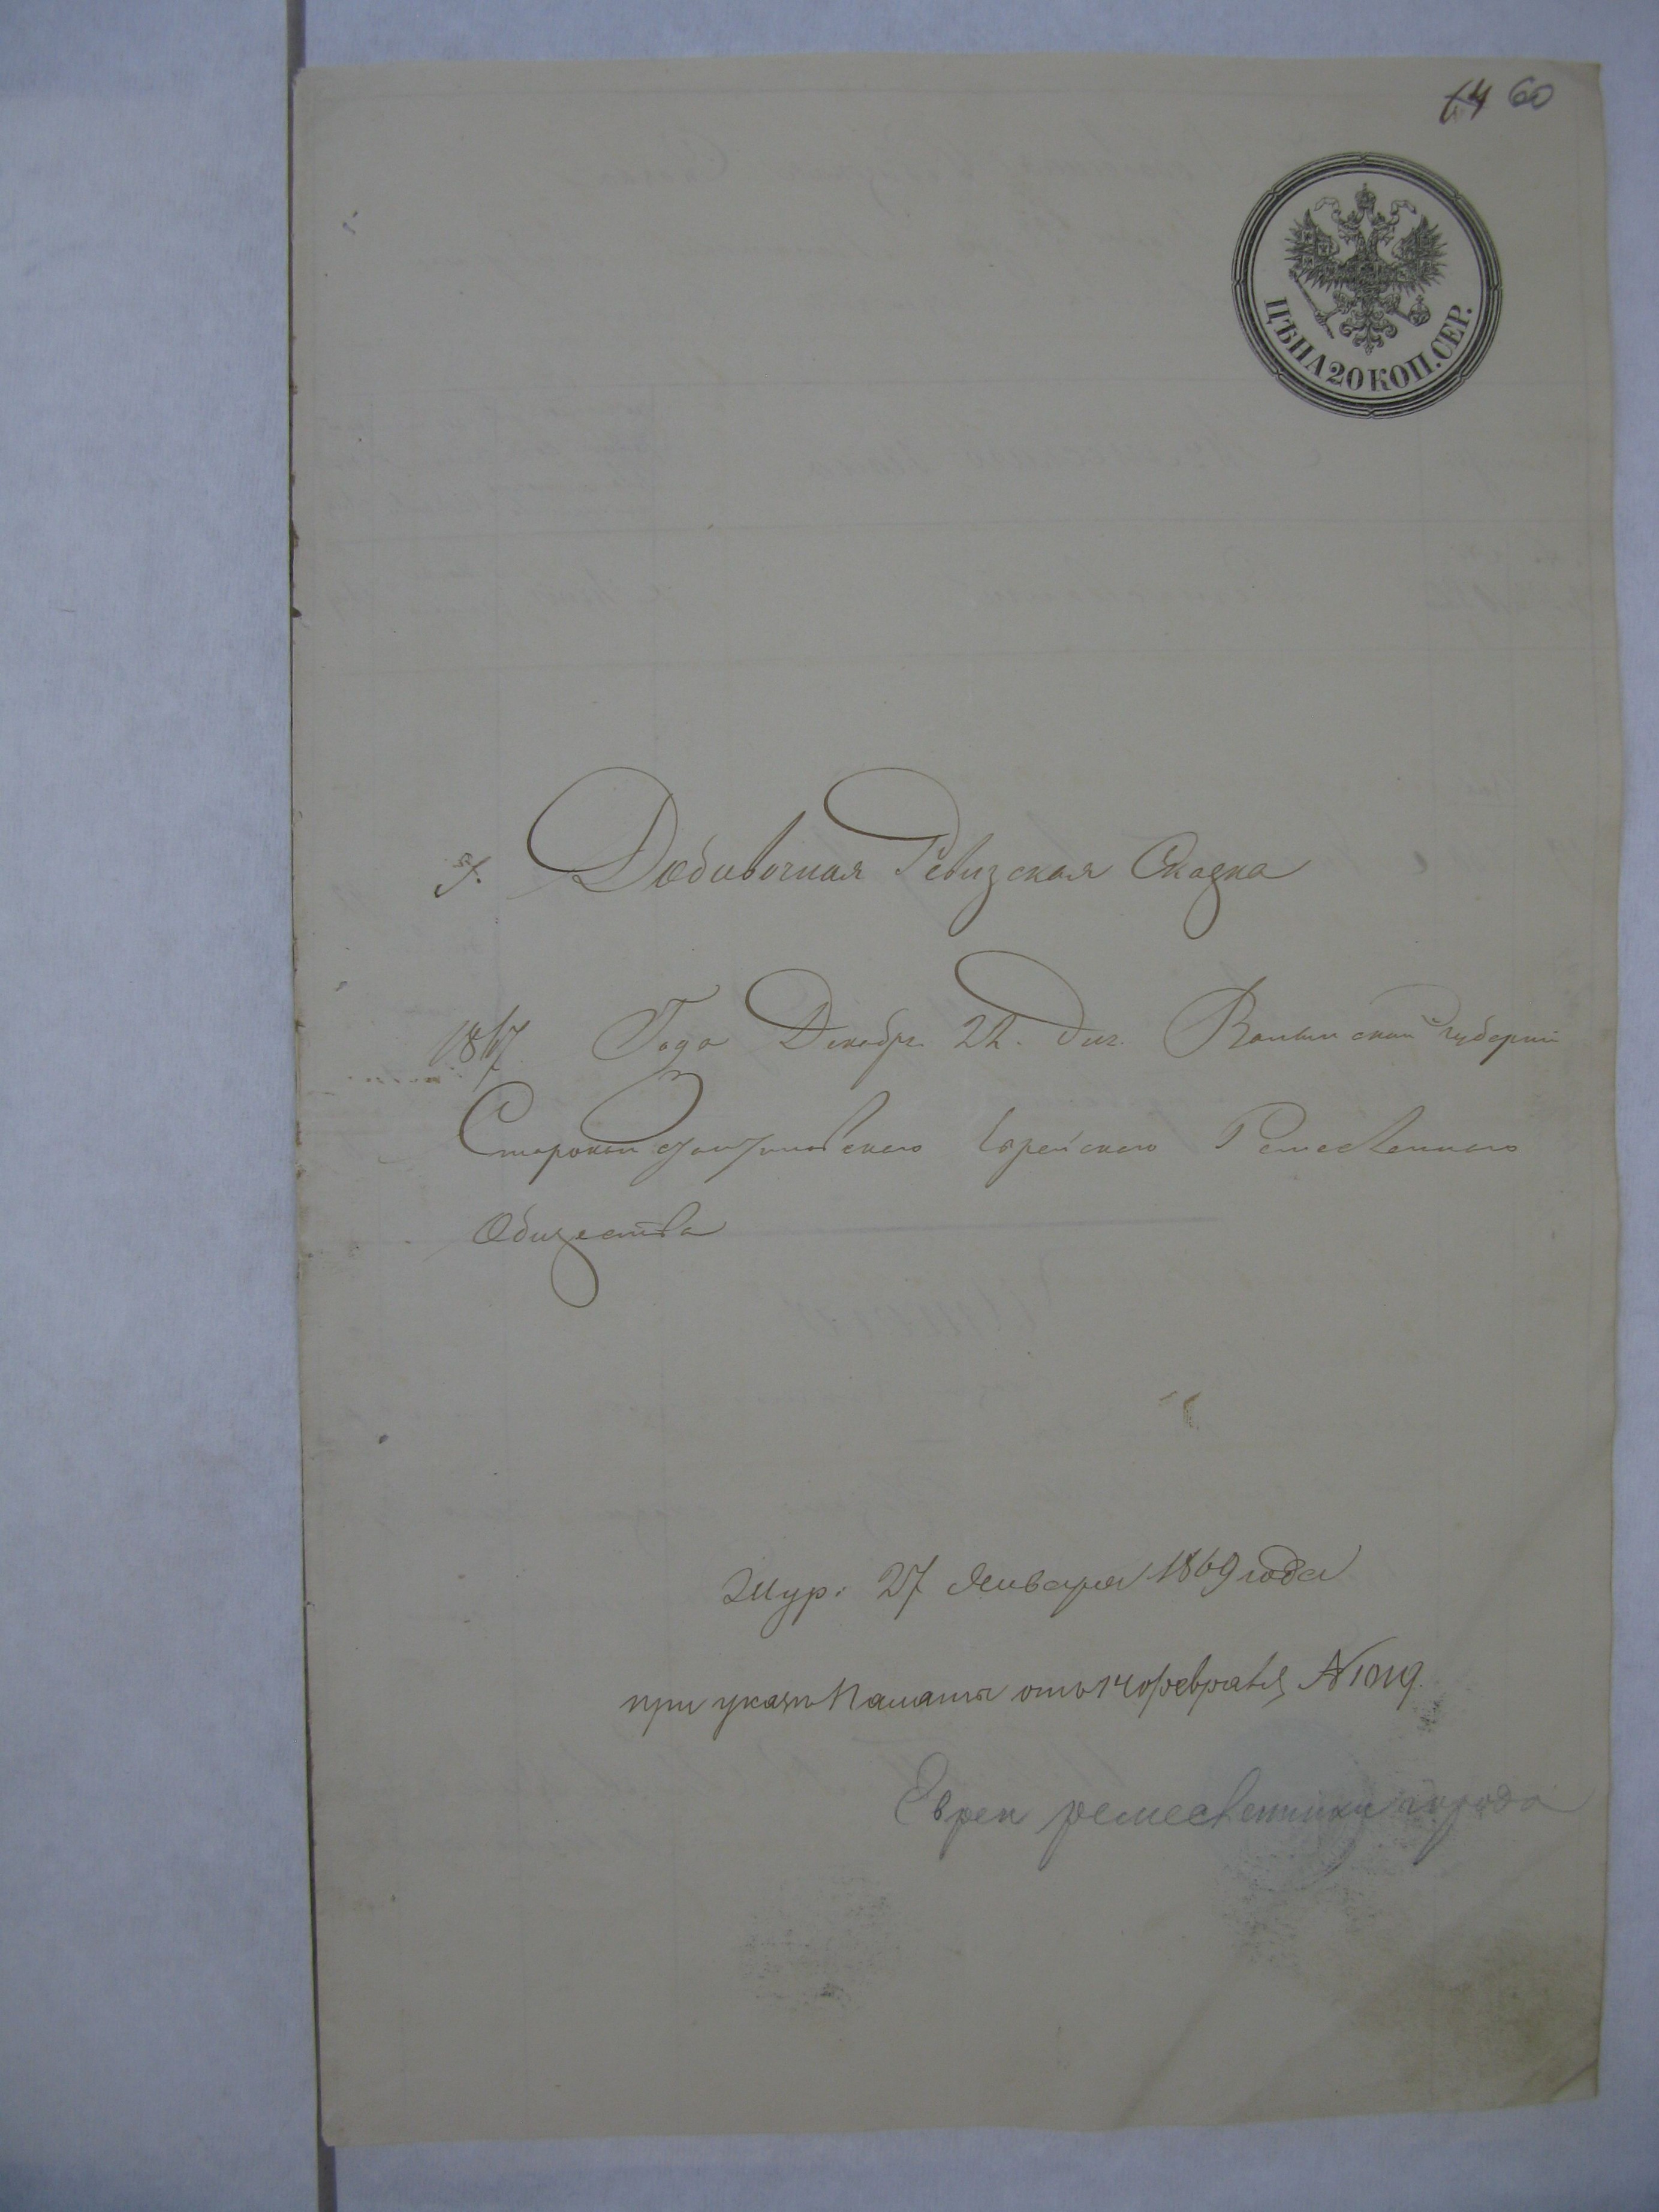 60
ЦѢНА 20 КОП. СЕР.
Добавочная Ревизская Сказка
1867 Года Декабр. 22. дня. Волынской губерніи
Староконстантиновского Еврейского Ремесленного
Общества
Жур: 27 Января 1869 года
при указѣ Палаты отъ 14 февраля № 1019.
Евреи ремесленники города